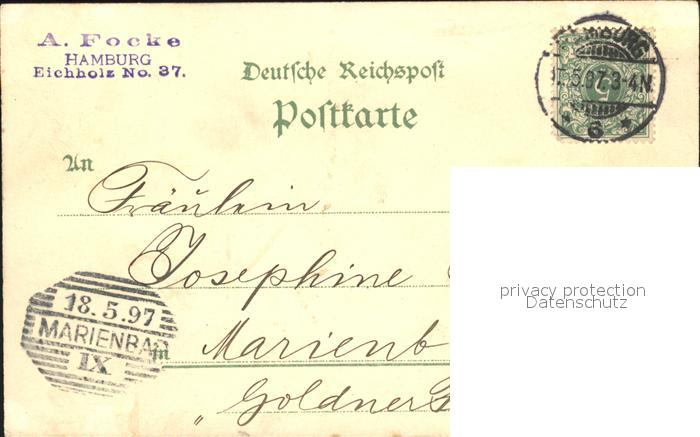 A. Focke
HAMBURG
Eichholz No. 37.
Deutsche Reichspost
Postkarte
5
5.97. 3-4N.
* 6 *
An
Fräulein
Josephine
18.5.97
MARIENBA
IX
in
Marienb
"Goldner
privacy protection
Datenschutz